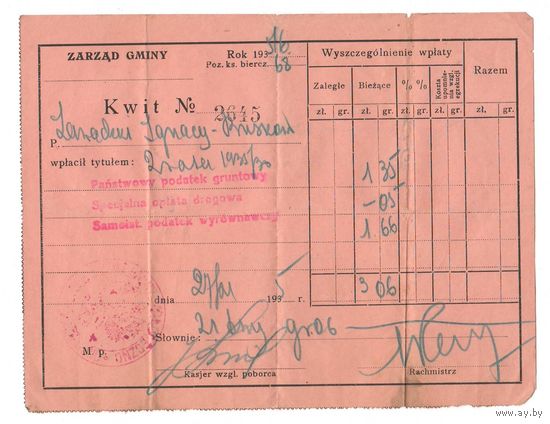 ZARZĄD GMINY
Rok 1935/6
Poz. ks. biercz. 68
Kwit № 2645
P. Ignacy
wpłacił tytułem: 2 rata
Państwowy podatek gruntowy
Specjalna opłata drogowa
Samoist. podatek wyrównawczy
Wyszczególnienie wpłaty
Razem
Zaległe
Bieżące
% %
Koszta upomnienia wzgl. egzekucji
zł. gr. zł. gr. zł. gr. zł. gr. zł. gr.
1 35
-05
1 66
3 06
dnia 27/XI 1935 r.
Słownie: zł. trzy gr 06
M p.
Kasjer wzgl. poborca
Rachmistrz
www.ay.by